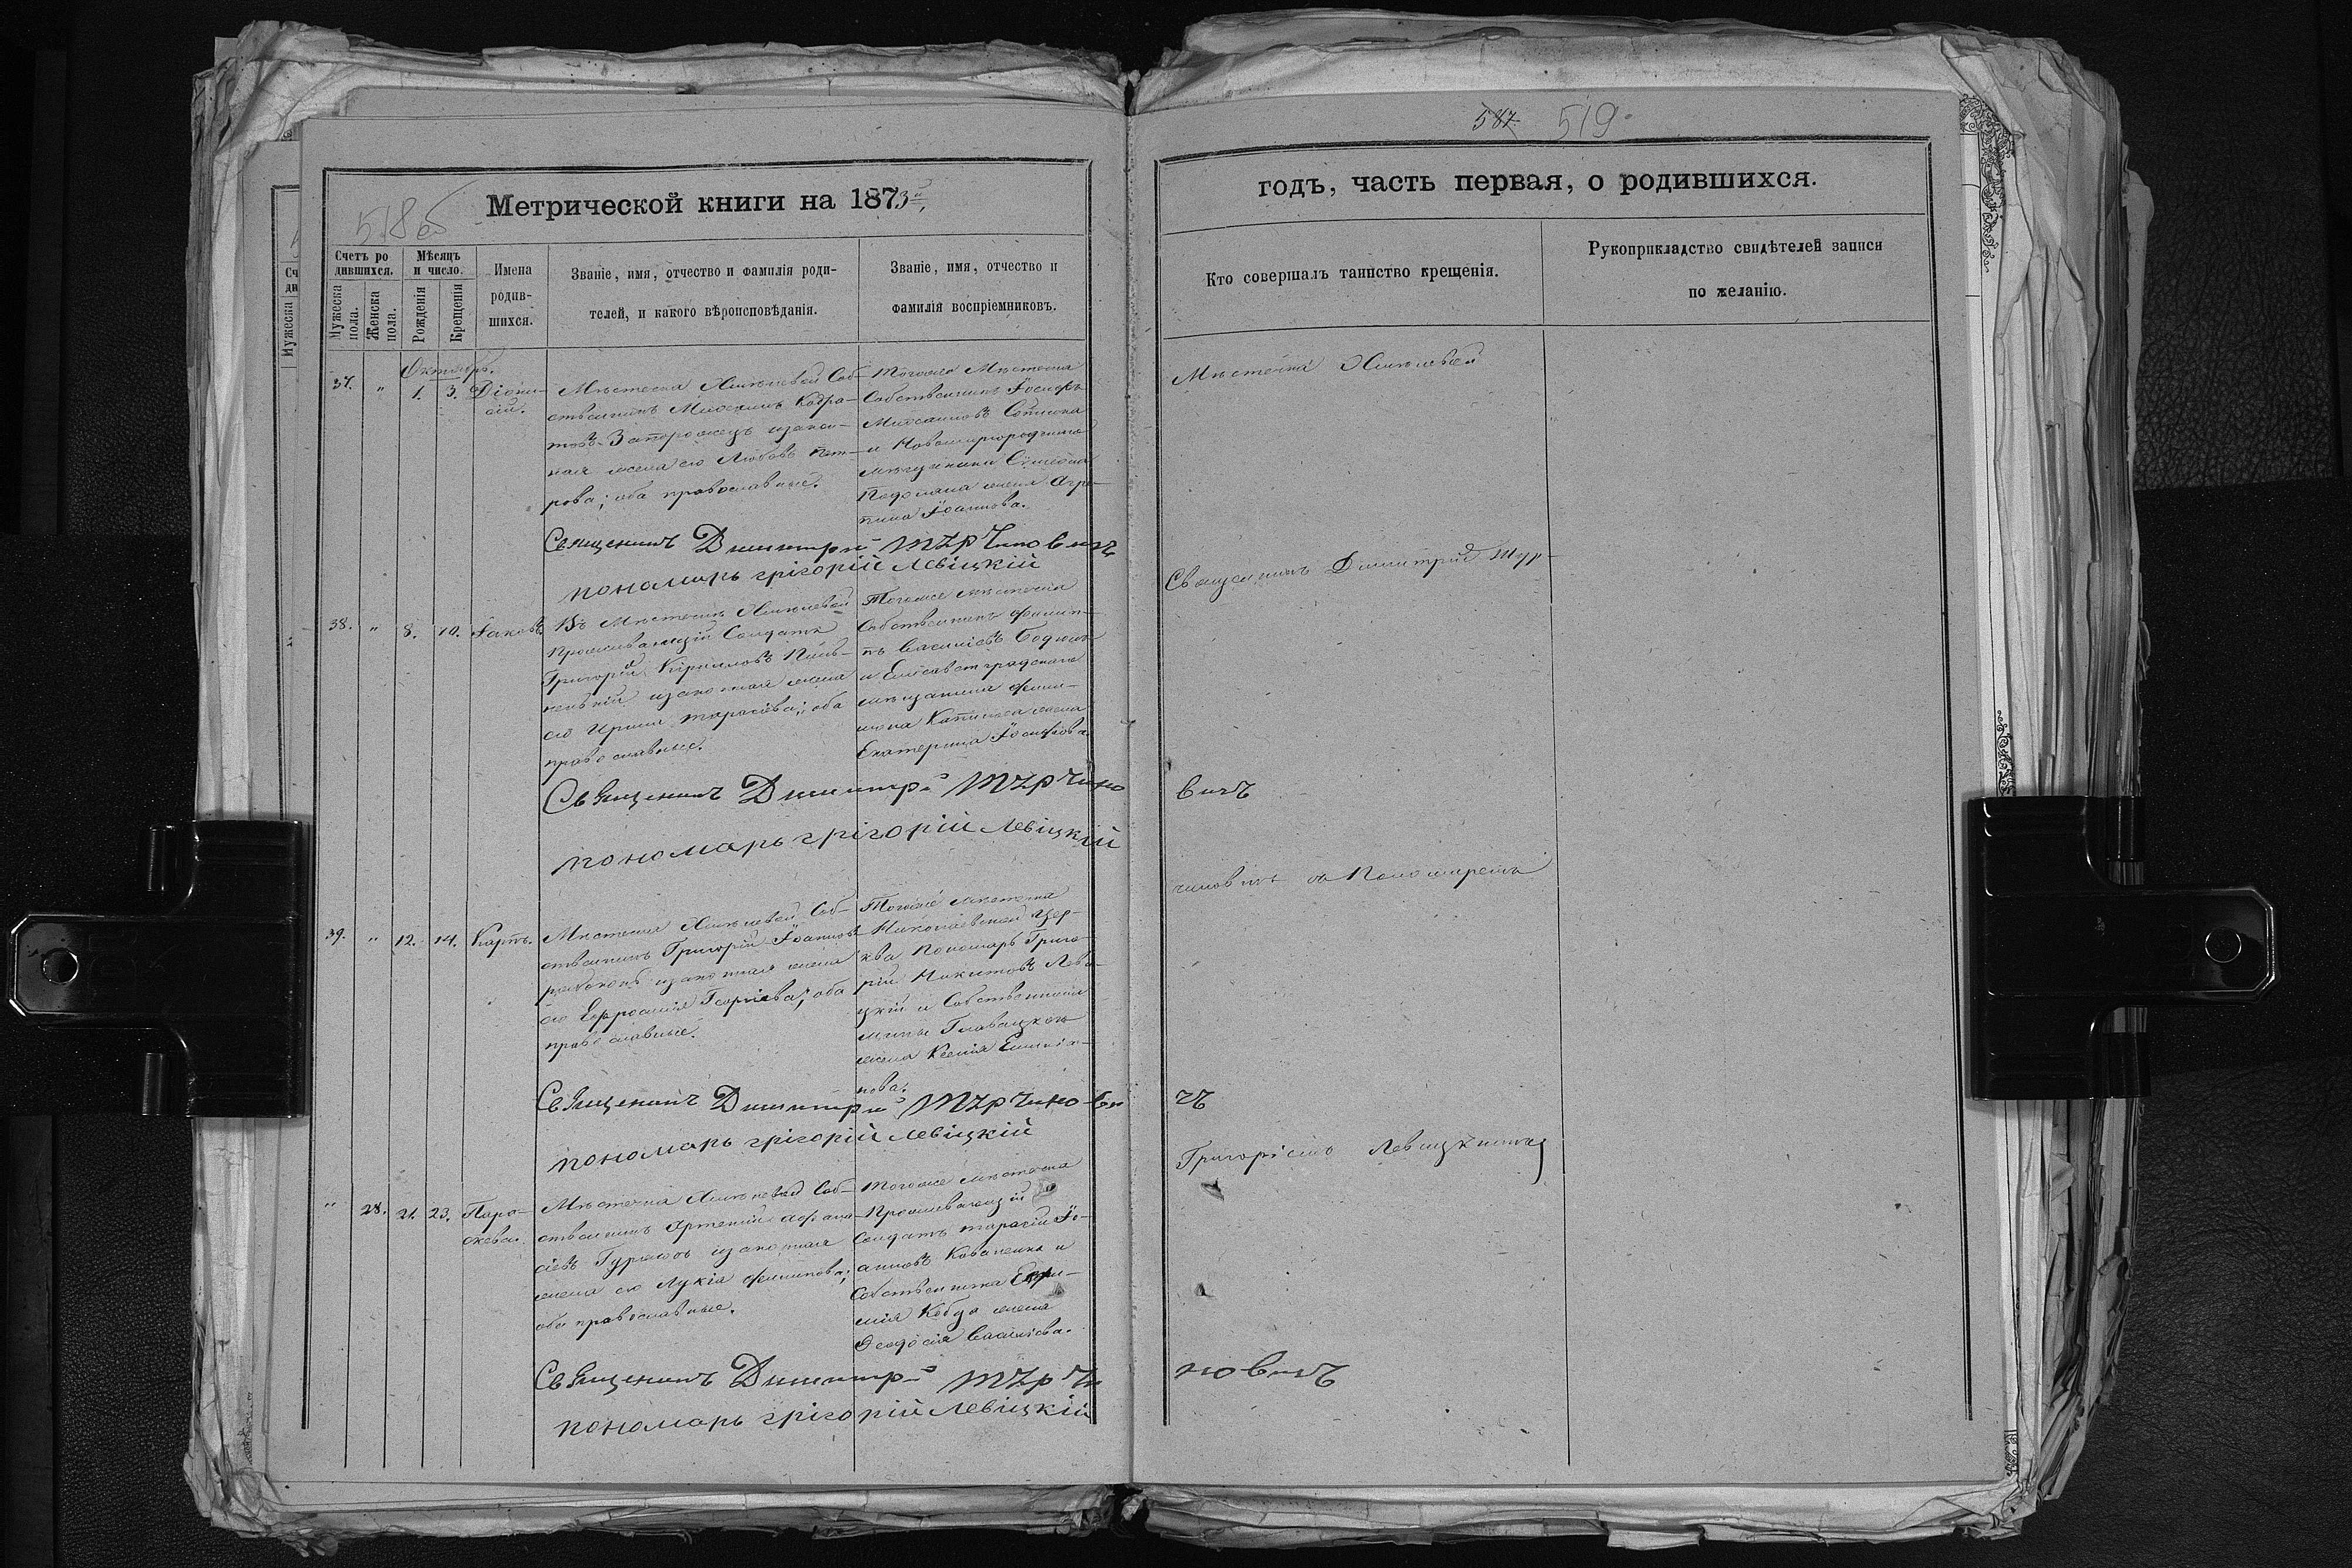 518 об
Метрической книги на 1873й
Счетъ ро
дившихся.
Мѣсяцъ
и число.
Мужеска пола.
Женска пола.
Рожденія
Крещенія
Имена
родив-
шихся.
Званіе, имя, отчество и фамилія роди-
телей, и какого вѣроисповѣданія.
Званіе, имя, отчество и
фамилія воспріемниковъ.
Октябрь.
37. " 1. 3. Діони-
сій.
Мѣстечка Хмѣлевой Соб-
ственникъ
Запорожецъ и закон-
ная жена его Любовь Пет-
рова; оба православные.
Тогоже Мѣстечка
Собственникъ Іосифъ
и Новомиргородского
мѣщанина Симеона
жена Агре-
пина Іоаннова.
Священникъ Димитрій Турчиновичъ
пономарь грігорій Левіцкій
38. " 8. 10. Іаковъ.
Въ Мѣстечкѣ Хмѣлевой
Проживающій Солдатъ
Григорій Кирилловъ
и законная жена
его Ирина Тарасіева; оба
православные.
Тогоже мѣстечка
Собственникъ Филип-
пъ Василіевъ
и Елисаветградскаго
мѣщанина Фили-
мона жена
Екатерина Іосифова.
Священникъ Димитрій Турчино
пономарь грігорій Левіцкій
39. " 12. 14. Карпъ.
Мѣстечка Хмѣлевой Соб-
ственникъ Григорій Іоанновъ
и законная жена
его Евфросинія Георгіева; оба
православные.
Тогоже мѣстечка
Николаевской Цер-
кви Пономарь Григо-
рій Никитовъ Леви-
цкій и Собственника
жена Ксенія Емиліа-
нова.
Священникъ Димитрій Турчинови
пономарь грігорій Левіцкій
" 28. 21. 23. Пара-
скева.
Мѣстечка Хмѣлевой Соб-
ственникъ Артемій Афана-
сіевъ и законная
жена его Лукія Филиппова;
оба православные.
Тогоже мѣстечка
Проживающій
Солдатъ Тарасій Іо-
анновъ Коваленко и
Собственника Евфи-
мія Кобца жена
Ѳеодосія Василіева.
Священникъ Димитрій Турчи
пономарь грігорій Левіцкій
587 519
годъ, часть первая, о родившихся.
Кто совершалъ таинство крещенія.
Рукоприкладство свидѣтелей записи
по желанію.
Мѣстечка Хмѣлевой
Священникъ Димитрій Тур-
вичъ
чиновичъ съ Пономаремъ
чъ
Григоріемъ Левицкимъ
новичъ